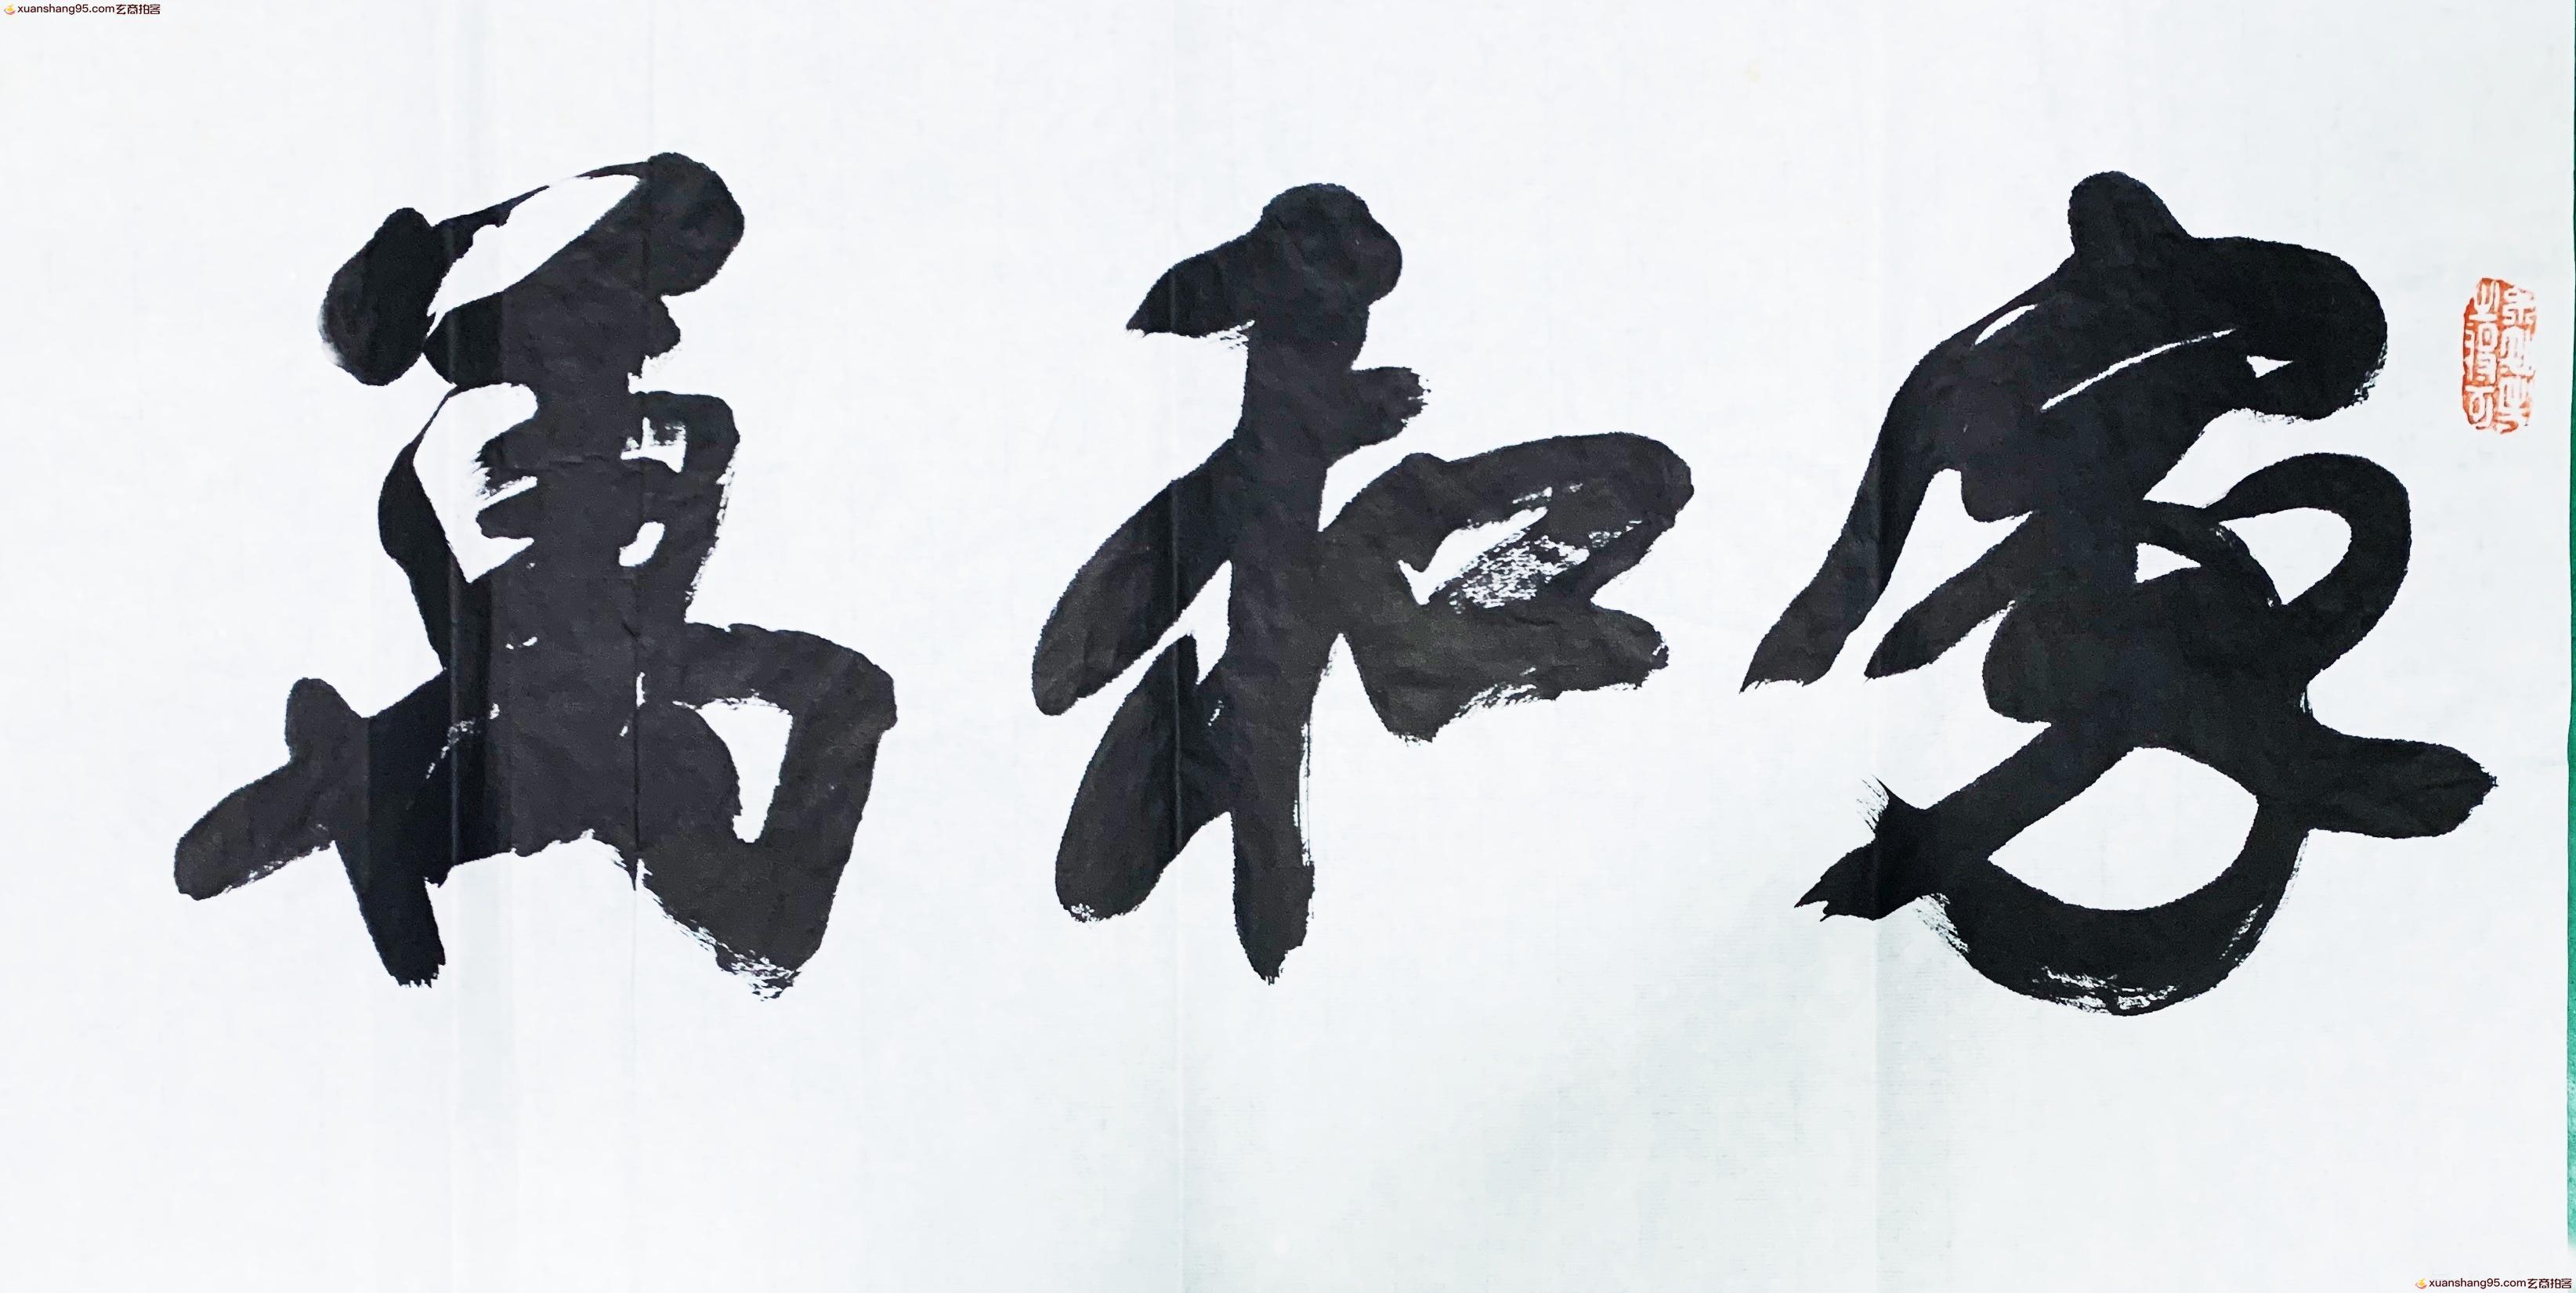 xuanshang95.com玄商拍客
家和萬
xuanshang95.com玄商拍客